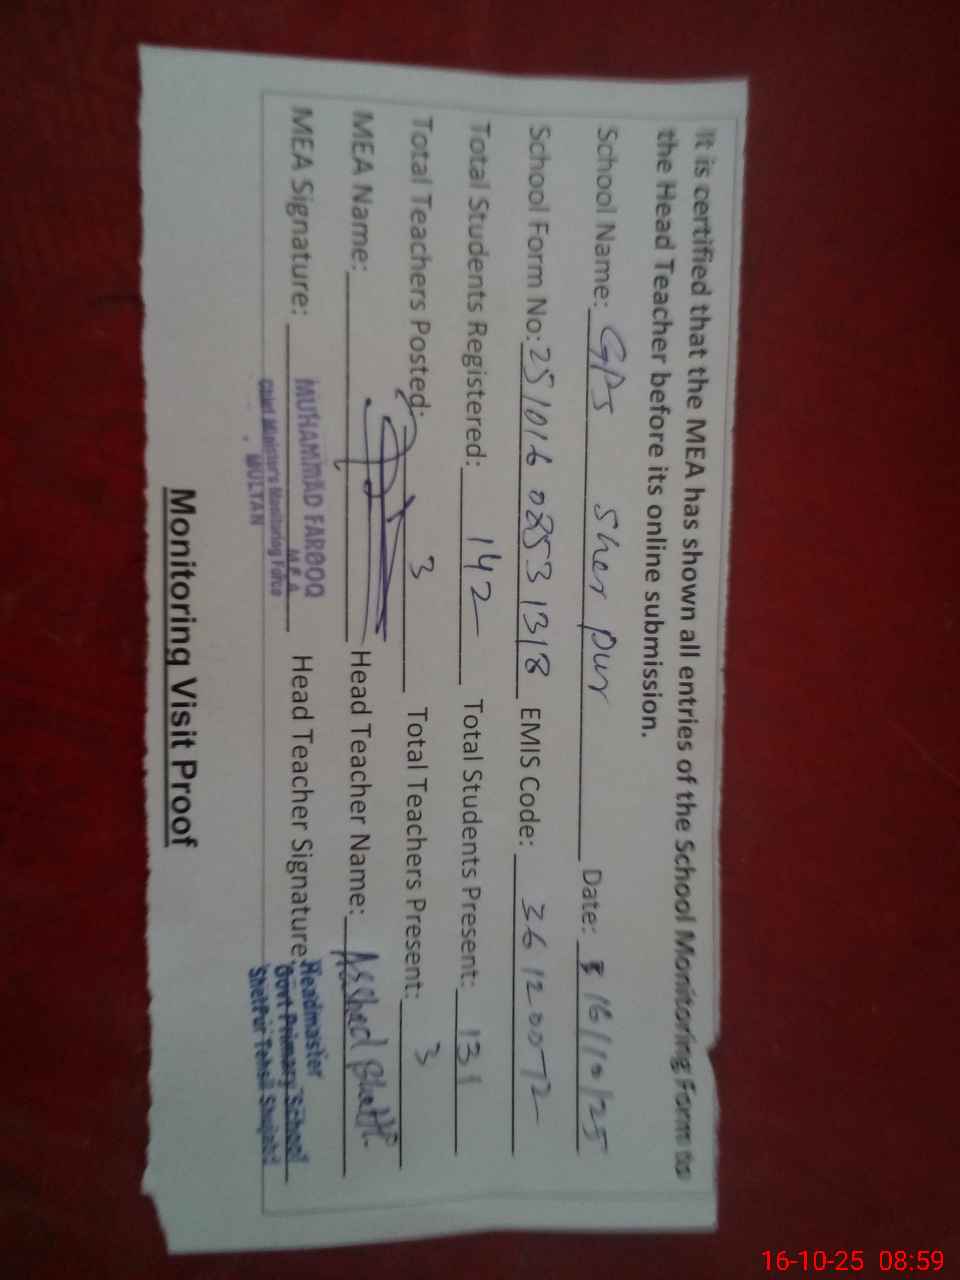 It is certified that the MEA has shown all entries of the School Monitoring Form to
the Head Teacher before its online submission.
School Name: GPS Sher pur Date: 16/10/25
School Form No: 251016 0253 1318 EMIS Code: 36120072
Total Students Registered: 142 Total Students Present: 131
Total Teachers Posted: 3 Total Teachers Present: 3
MEA Name: Head Teacher Name: Bhatti
MEA Signature: MUHAMMAD FAROOQ Head Teacher Signature: Headmaster
M.E.A Govt Primary School
Chief Minister's Monitoring Force SherPur Tehsil Shujabad
MULTAN
Monitoring Visit Proof
16-10-25 08:59